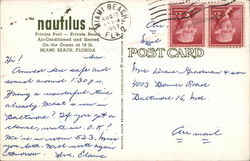 the nautilus
Private Pool — Private Beach
Air-Conditioned and Heated
On the Ocean at 18 St.
MIAMI BEACH, FLORIDA
MIAMI BEACH
FLA.
POST CARD
Hi!
Arrived here safe and
sound around 1:30 p.m.
Having a wonderful time
already. What's new in
Baltimore? If you get a
chance, write me O.K.?
We're in room 523. Bye
for now, will write again
tomorrow. Love, Elaine
Air mail
Mrs.
4003 Bonner Road
Baltimore 16, Md.
Air mail